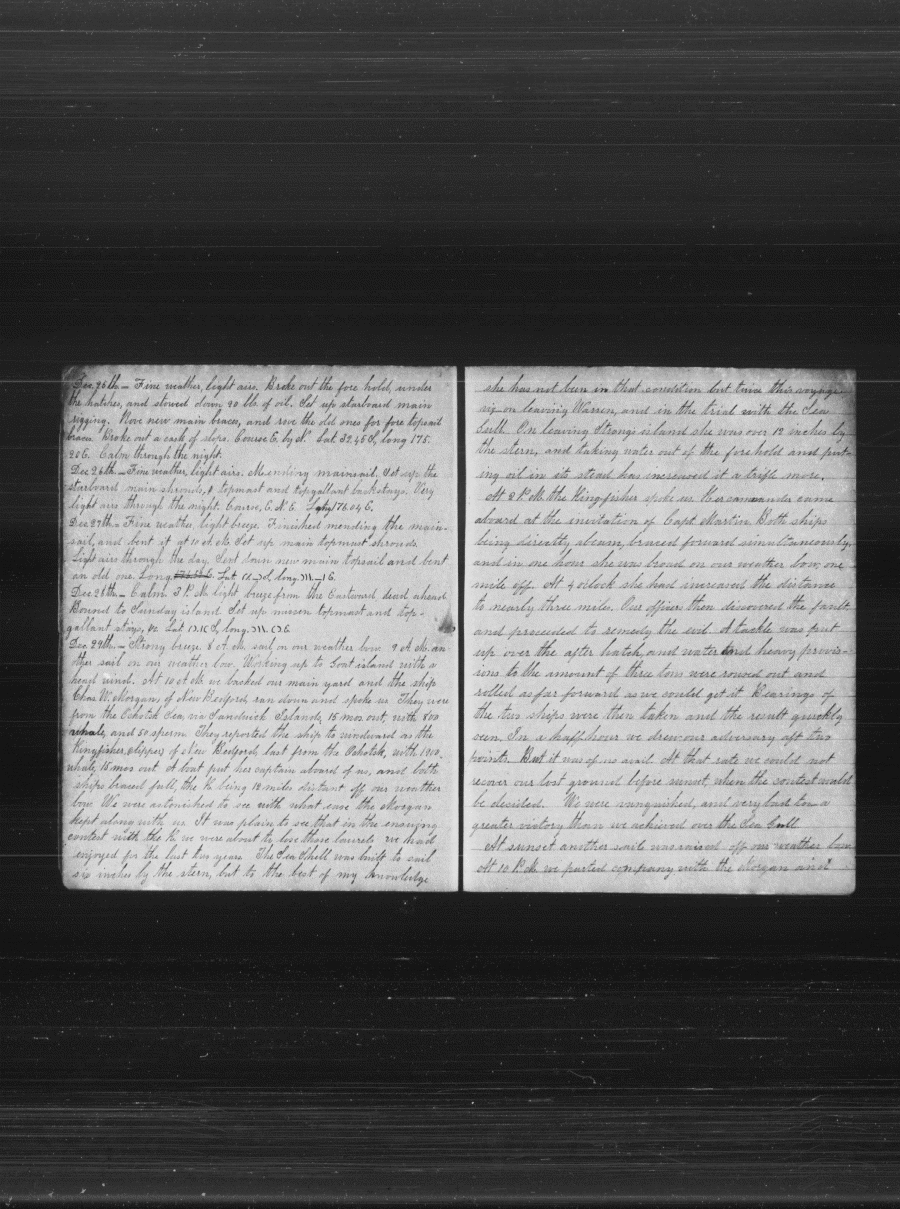 Dec 25th.— Fine weather, light airs. Broke out the fore hold, under
the hatches, and stowed down 90 bbl of oil. Set up starboard main
rigging. Rove new main braces, and rove the old ones for fore topsail
braces. Broke out a cask of slops. Course E. by N. Lat 32.45 S, long 175.
20 E. Calm through the night.
Dec 26th.— Fine weather, light airs. Mending mainsail. Set up the
starboard main shrouds, & topmast and topgallant backstays. Very
light airs through the night. Course, E. N. E. Long 176.04 E.
Dec 27th.— Fine weather, light breeze. Finished mending the main-
sail, and bent it at 10 A. M. Set up main topmast shrouds.
Light airs through the day. Sent down new main topsail and bent
an old one. Long Lat long
Dec 28th.— Calm. 3 P. M. light breeze from the Eastward dead ahead.
Bound to Sunday island. Set up mizen topmast and top-
gallant stays, &c. Lat long.
Dec 29th.— Strong breeze. 8 A. M. sail on our weather bow. 9 A. M. an-
other sail on our weather bow. Working up to Goat island with a
head wind. At 10 A. M. we backed our main yard and the ship
Chas W. Morgan, of New Bedford, ran down and spoke us. They were
from the Ochotsk Sea, via Sandwich Islands, 15 mos out, with 800
whale, and 50 sperm. They reported the ship to windward as the
Kingfisher, clipper, of New Bedford, last from the Ochotsk, with 1900
whale, 15 mos out. A boat put her captain aboard of us, and both
ships braced full, the K. being 12 miles distant off our weather
bow. We were astonished to see with what ease the Morgan
kept along with us. It was plain to see, that in the ensuing
contest with the K. we were about to lose those laurels we had
enjoyed for the last two years. The Sea Shell was built to sail
six inches by the stern, but to the best of my knowledge
she has not been in that condition but twice this voyage
viz—on leaving Warren, and in the trial with the Sea
Gull. On leaving Strong's island she was over 12 inches by
the stern, and taking water out of the forehold and put-
ing oil in its stead has increased it a trifle more.
At 2 P. M. the Kingfisher spoke us. Her commander came
aboard at the invitation of Capt Martin. Both ships
being directly abeam, braced forward simultaneously,
and in one hour she was broad on our weather bow, one
mile off. At 4 oclock she had increased the distance
to nearly three miles. Our officers then discovered the fault
and proceeded to remedy the evil. A tackle was put
up over the after hatch, and water and heavy provis-
ions to the amount of three tons were roused out and
rolled as far forward as we could get it. Bearings of
the two ships were then taken and the result quickly
seen. In a half hour we drew our adversary aft two
points. But it was of no avail. At that rate we could not
recover our lost ground before sunset, when the contest would
be decided. We were vanquished, and very bad too—a
greater victory than we achieved over the Sea Gull.
At sunset another sail was raised off our weather bow.
At 10 P. M. we parted company with the Morgan and